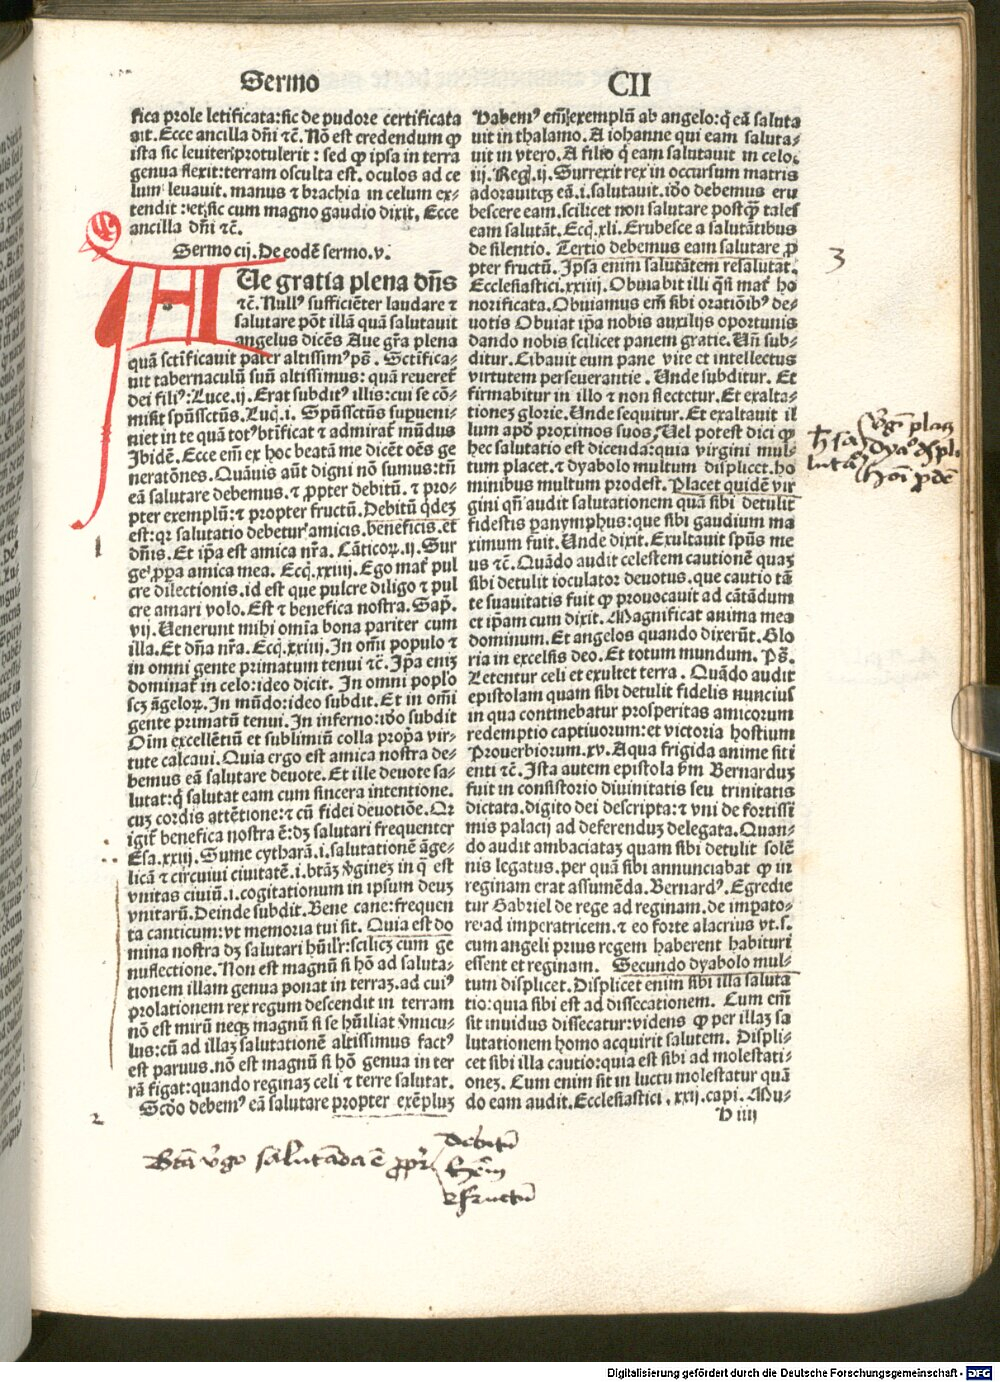 Sermo
CII
fica prole letificata: sic de pudore certificata
ait. Ecce ancilla dñi ⁊c̃. Nõ est credendum ꝙ
ista sic leuiter protulerit: sed ꝙ ipsa in terra
genua flexit: terram osculta est. oculos ad ce
lum leuauit. manus ⁊ brachia in celum ex-
tendit: et sic cum magno gaudio dixit, Ecce
ancilla dñi ⁊c̃.
Sermo cij. De eodẽ sermo. v.
AUe gratia plena dñs
⁊c̃. Nullꝰ sufficiẽter laudare ⁊
salutare põt illã quã salutauit
angelus dicẽs Aue gr̃a plena
quã sctĩficauit pater altissimꝰ pš. Sctĩfica-
uit tabernaculũ suũ altissimus: quã reueret̃
dei filiꝰ: Luce. ij. Erat subditꝰ illis: cui se cõ-
misit spũssctũs. Luq̃. i. Spũssctũs supueni-
niet in te quã totꝰ btĩficat ⁊ admirat̃ mũdus
Ibidẽ. Ecce em̃ ex hoc beatã me dicẽt oẽs ge
neratõnes. Quãuis aũt digni nõ sumus: tñ
eã salutare debemus. ⁊ ꝓpter debitũ. ⁊ pro-
pter exemplũ: ⁊ propter fructũ. Debitũ q̃deꝫ
est: qꝛ salutatio debetur amicis. beneficis. et
dñis. Et ip̃a est amica nr̃a. Cãticoꝝ. ij. Sur
ge ꝓpa amica mea. Ecq̃. xxiiij. Ego mat̃ pul
cre dilectionis. id est que pulcre diligo ⁊ pul
cre amari volo. Est ⁊ benefica nostra. Sap̃.
vij. Uenerunt mihi om̃ia bona pariter cum
illa. Et dña nr̃a. Ecq̃. xxiiij. In om̃i populo ⁊
in omni gente primatum tenui ⁊c̃. Ip̃a eniꝫ
dominat̃ in celo: ideo dicit. In omni poplo
scꝫ ãgeloꝝ. In mũdo: ideo subdit. Et in om̃i
gente primatũ tenui. In inferno: ido subdit
Oĩm excellẽtiũ et sublimiũ colla propa vir-
tute calcaui. Quia ergo est amica nostra de-
bemus eã salutare deuote. Et ille deuote sa-
lutat: q̃ salutat eam cum sincera intentione.
cuꝫ cordis attẽtione: ⁊ cũ fidei deuotiõe. Or
igit̃ benefica nostra ẽ: dꝫ salutari frequenter
Esa. xxiij. Sume cytharã. i. salutationẽ ãge-
licã ⁊ circuiui ciuitatẽ. i. btãꝫ vgineꝫ in q̃ est
vnitas ciuiũ. i. cogitationum in ipsum deuꝫ
vnitarũ. Deinde subdit. Bene cane: frequen
ta canticum: vt memoria tui sit. Quia est do
mina nostra dꝫ salutari hũilr̃: scilicꝫ cum ge
nuflectione. Non est magnũ si hõ ad saluta-
tionem illam genua ponat in terraꝫ. ad cuiꝰ
prolationem rex regum descendit in terram
nõ est mirũ neqꝫ magnũ si se hũiliat vmicu-
lus: cũ ad illaꝫ salutationẽ altissimus factꝰ
est paruus. nõ est magnũ si hõ genua in ter
rã figat: quando reginaꝫ celi ⁊ terre salutat.
Scd̃o debemꝰ eã salutare propter exẽpluꝫ
Habemꝰ em̃ exemplũ ab angelo: q̃ eã saluta
uit in thalamo. A iohanne qui eam saluta-
uit in vtero. A filio q̃ eam salutauit in celo.
iij. Reg̃. ij. Surrexit rex in occursum matris
adorauitqꝫ eã. i. salutauit. ido debemus eru
bescere eam. scilicet non salutare postꝙ̃ tales
eam salutãt. Ecq̃. xli. Erubesce a salutãtibus
de silentio. Tertio debemus eam salutare ꝓ
pter fructũ. Ipsa enim salutãtem resalutat.
Ecclesiastici. xxiiij. Obuiabit illi q̃si mat̃ ho
norificata. Obuiamus em̃ sibi oratiõibꝰ de-
uotis Obuiat ip̃a nobis auxilijs oportunis
dando nobis scilicet panem gratie. Uñ sub-
ditur. Cibauit eum pane vite et intellectus
virtutem perseuerantie. Unde subditur. Et
firmabitur in illo ⁊ non flectetur. Et exalta-
tioneꝫ glorie. Unde sequitur. Et exaltauit il
lum apd̃ proximos suos. Uel potest dici ꝙ
hec salutatio est dicenda: quia virgini mul-
tum placet. ⁊ dyabolo multum displicet. ho
minibus multum prodest. Placet quidẽ vir
gini qñ audit salutationem quã sibi detulit
fidestis panymphus: que sibi gaudium ma
ximum fuit. Unde dixit. Exultauit spũs me
us ⁊c̃. Quãdo audit celestem cautionẽ quaꝫ
sibi detulit ioculator deuotus. que cautio tã
te suauitatis fuit ꝙ prouocauit ad cãtãdum
et ipsam cum dixit. Magnificat anima mea
dominum. Et angelos quando dixerũt. Glo
ria in excelsis deo. Et totum mundum. Pš.
Letentur celi et exultet terra. Quãdo audit
epistolam quam sibi detulit fidelis nuncius
in qua continebatur prosperitas amicorum
redemptio captiuorum: et victoria hostium
Prouerbiorum. xv. Aqua frigida anime siti
enti ⁊c̃. Ista autem epistola ẜm Bernarduꝫ
fuit in consistorio diuinitatis seu trinitatis
dictata. digito dei descripta: ⁊ vni de fortissi
mis palacij ad deferenduꝫ delegata. Quan-
do audit ambaciataꝫ quam sibi detulit solẽ
nis legatus. per quã sibi annunciabat ꝙ in
reginam erat assumẽda. Bernardꝰ. Egredie
tur Gabriel de rege ad reginam. de imꝑato-
re ad imperatricem. ⁊ eo forte alacrius vt. s.
cum angeli prius regem haberent habituri
essent et reginam. Secundo dyabolo mul-
tum displicet. Displicet enim sibi illa saluta
tio: quia sibi est ad dissecationem. Cum em̃
sit inuidus dissecatur: videns ꝙ per illaꝫ sa
lutationem homo acquirit salutem. Displi-
cet sibi illa cautio: quia est sibi ad molestati-
oneꝫ. Cum enim sit in luctu molestatur quã
do eam audit. Ecclesiastici. xxij. capi. Mu-
v iiij
3
h̃ sa
lutã
Vgĩ placꝫ
dyaᵒ dspli
hoĩ ꝓdẽ
1
2
Btã vgo salutãda ẽ ꝓpt̃
debitũ
exẽm
⁊ fructũ
Digitalisierung gefördert durch die Deutsche Forschungsgemeinschaft - DFG